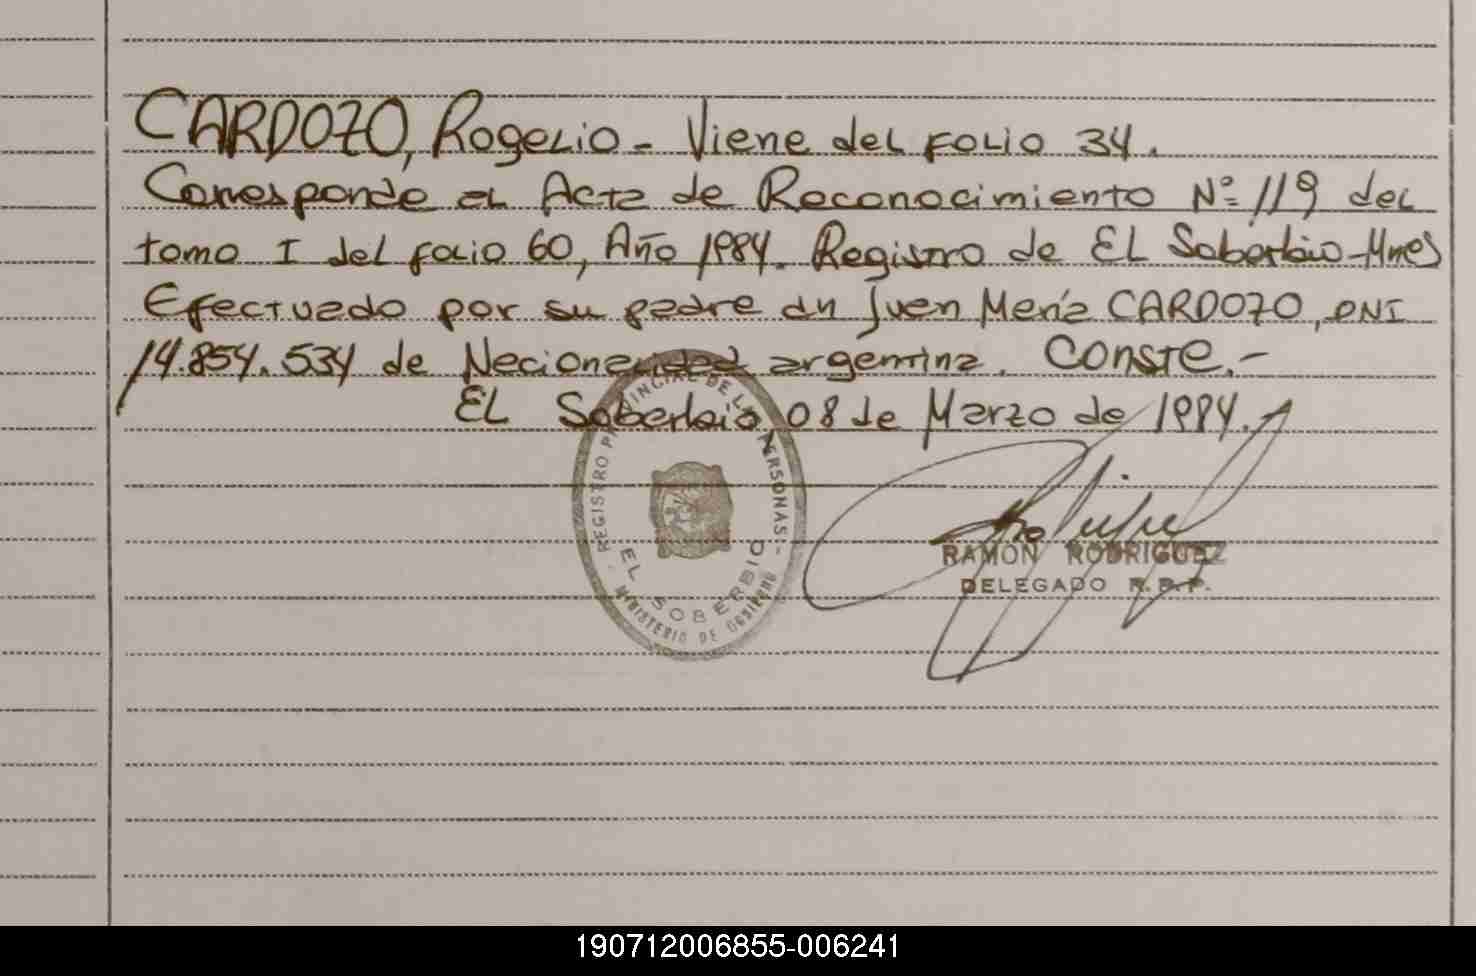 CARDOZO, Rogelio - Viene del folio 34.
Corresponde al Acta de Reconocimiento Nº 119 del
tomo I del folio 60, Año 1984. Registro de EL Soberbio - Mnes
Efectuado por su padre dn Juan María CARDOZO, DNI
14.854.534 de Nacionalidad argentina. Conste.-
EL Soberbio, 08 de Marzo de 1984.
REGISTRO PROVINCIAL DE LAS PERSONAS -
EL SOBERBIO
MINISTERIO DE GOBIERNO
RAMON RODRIGUEZ
DELEGADO R.P.P.
190712006855-006241